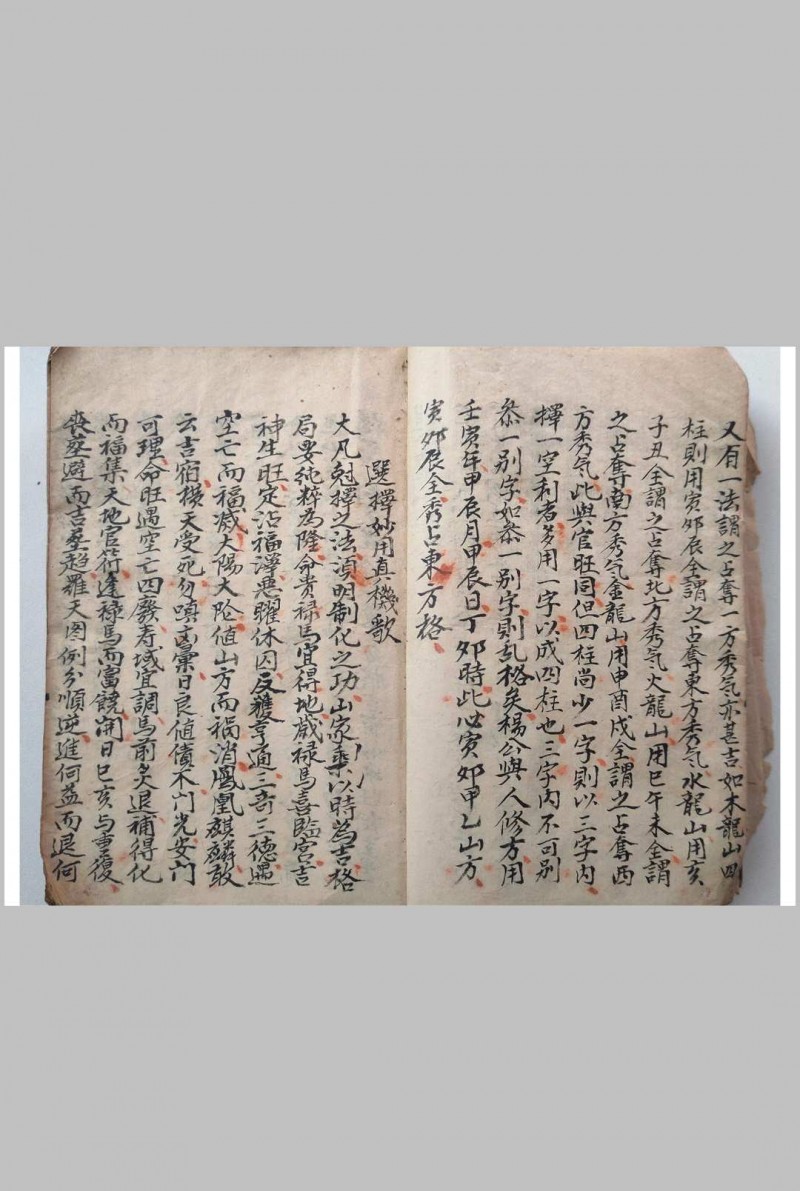 又有一法謂之占奪一方秀氣亦甚吉如木龍山四
柱則用寅夘辰全謂之占奪東方秀氣水龍山用亥
子丑全謂之占奪北方秀气火龍山用巳午未全謂
之占奪南方秀气金龍山用申酉戌全謂之占奪西
方秀气此與官旺同但四柱尚少一字則以三字內
擇一空利者多用一字以成四柱也三字內不可別
叅一別字如叅一別字則乱格矣楊公與人修方用
壬寅年甲辰月甲辰日丁夘時此必寅夘甲乙山方
寅夘辰全秀占東方格
選擇妙用真機歌
大凡剋擇之法須明制化之功山家乘以時為吉格
局要純粹為隆命貴祿馬宜得地歲祿馬喜臨宮吉
神生旺定沾福澤惡曜休囚反獲亨通三奇三德遇
空亡而福减太陽太阴值山方而禍消鳳凰麒麟敢
云吉宿橫天受死勿嗔凶彙日良值債不門光安門
可理命旺遇空亡四廢寿域宜調馬前炙退補得化
而福集天地官符逢祿馬而富饒開日巳亥与重復
喪塟避而吉塟超羅天图例分順逆進何益而退何